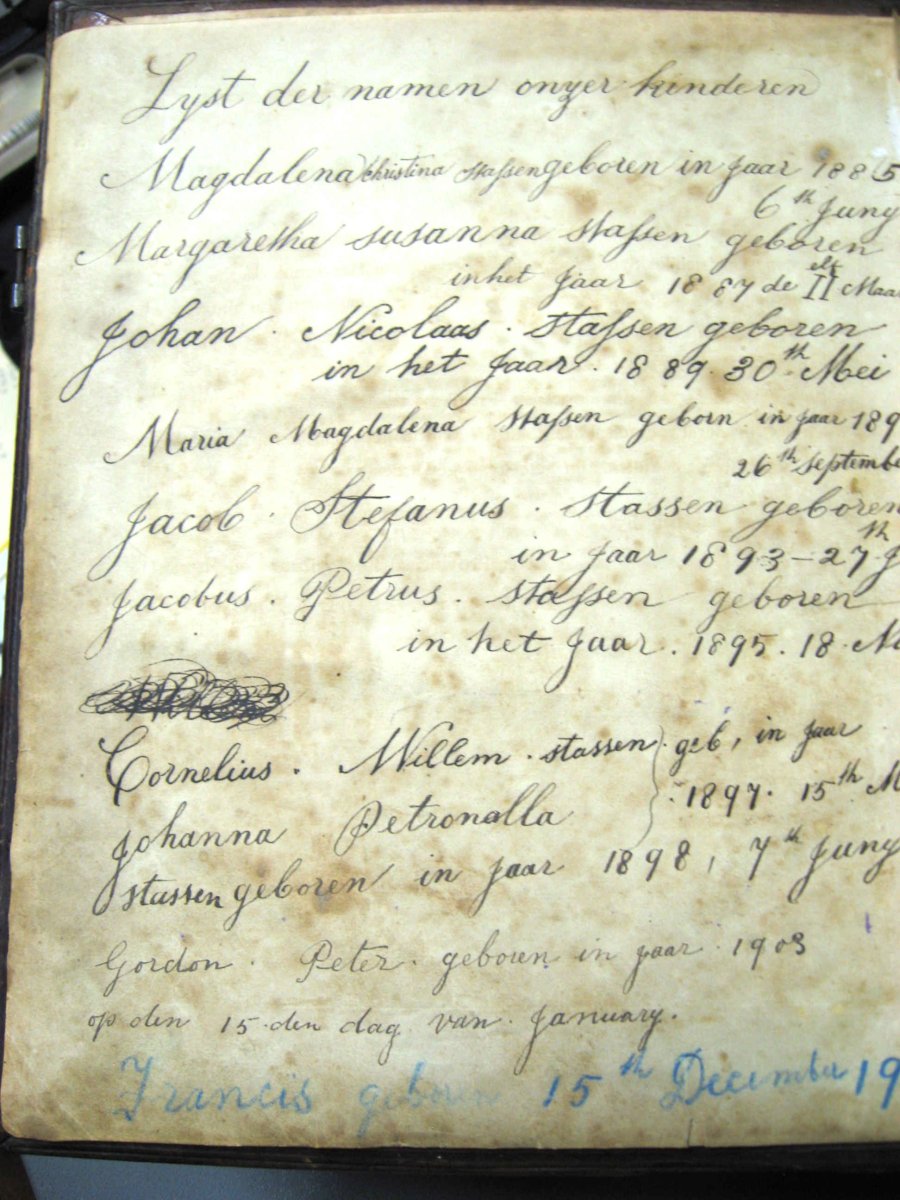 Lyst der namen onzer kinderen
Magdalena Christina Stassen geboren in jaar 1885
6th Juny
Margaretha susanna stassen geboren
in het Jaar 1887 de II
Johan Nicolaas Stassen geboren
in het Jaar. 1889. 30th Mei
Maria Magdalena stassen geborn in jaar 189
26th Septembe
Jacob Stefanus stassen geboren
in jaar 1893 – 27th J
Jacobus. Petrus. stassen geboren
in het Jaar. 1895. 18. N
Cornelius. Willem. stassen geb, in jaar
1897. 15th M
Johanna Petronalla
stassen geboren in jaar 1898, 7th Juny
Gordon. Peter. geboren in jaar 1903
op den 15 den dag van January.
Francis geboren 15th December 19